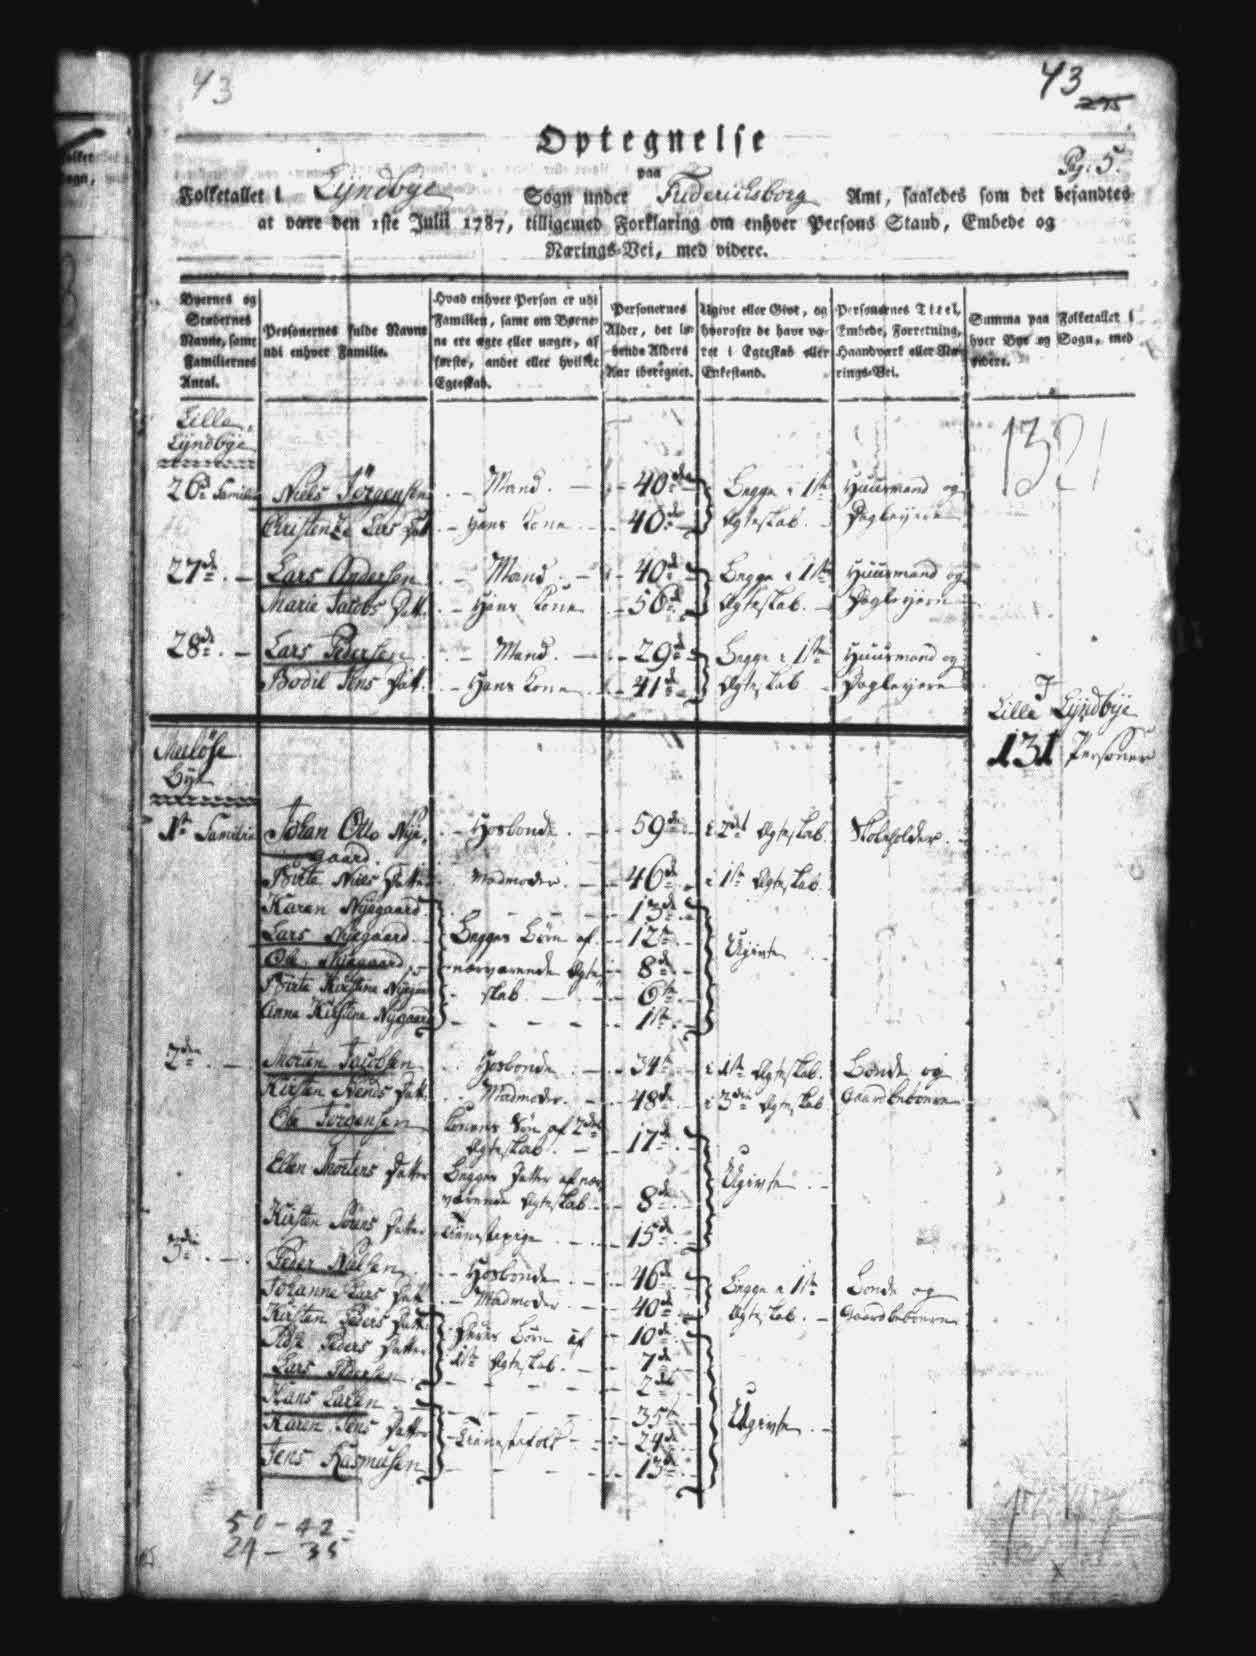 43
43
275
Optegnelse
paa
Pag: 5.
Folketallet i Lyndbye Sogn under Friderichsborg Amt, saaledes som det befandtes
at være den 1ste Julii 1787, tilligemed Forklaring om enhver Persons Stand, Embede og
Nærings-Vei, med videre.
Byernes og Stædernes Navne, samt Familiernes Antal.
Personernes fulde Navne udi enhver Familie.
Hvad enhver Person er udi Familien, samt om Børnene ere ægte eller uægte, af første, andet eller hvilket Egteskab.
Personernes Alder, det løbende Alders Aar iberegnet.
Ugivt eller Givt, og hvorofte de have været i Egteskab eller Enkestand.
Personernes Titel, Embede, Forretning, Haandværk eller Nærings-Vei.
Summa paa Folketallet i hver Bye og Sogn, med videre.
Lille
Lyndbye
1321
26de Familie Niels Jörgensen Mand. 40de Begge i 1ste Huusmand og
Christenze Lars Dat. Hans Kone 40de Ægteskab. Dagleyere
27de Lars Andersen Mand 40de Begge i 1ste Huusmand og
Marie Jacobs Datt. Hans Kone 56de Ægteskab. Dagleyere
28de Lars Pedersen Mand. 29de Begge i 1ste Huusmand og
Bodil Jens Datt. Hans Kone 41de Ægteskab Dagleyere
I
Lille Lyndbye
131 Personer
Meelöse
Bye
1ste Familie Johan Otto Nye- Hosbonde 59de i 2det Ægteskab Skoleholder
gaard.
Birte Niels Datter Madmoder. 46de i 1ste Ægteskab.
Karen Nyegaard 13de
Lars Nyegaard Begges Börn af 12te Ugivte
Ole Nyegaard nærværende Ægte- 8de
Birte Kirstine Nyegaard skab 6te
Anna Kirstine Nygaard 1ste
2den Morten Jacobsen Hosbonde 34te i 1ste Ægteskab. Bonde og
Kirsten Svends Datt. Madmoder. 48de i 3die Ægteskab Gaardbeboere
Ole Jörgensen Konens Sön af 2det 17de
Ægteskab.
Ellen Mortens Datter Begges Datter af nær- Ugivte
værende Ægteskab 8de
Kirsten Sörens Datter Tienestepige 15de
3die
Peder Nielsen Hosbonde 46de Begge i 1ste Bonde og
Johanne Lars Datt. Madmoder 40de Ægteskab. Gaardbeboere
Kirsten Peders Datter Deres Börn af 10de
Sidse Peders Datter 1ste Ægteskab. 7de
Lars Pedersen 2det
Hans Larsen 35te Ugivte
Karen Jens Datter Tienestefolk 24de
Jens Rasmusen 13de
50 - 42
24 - 35